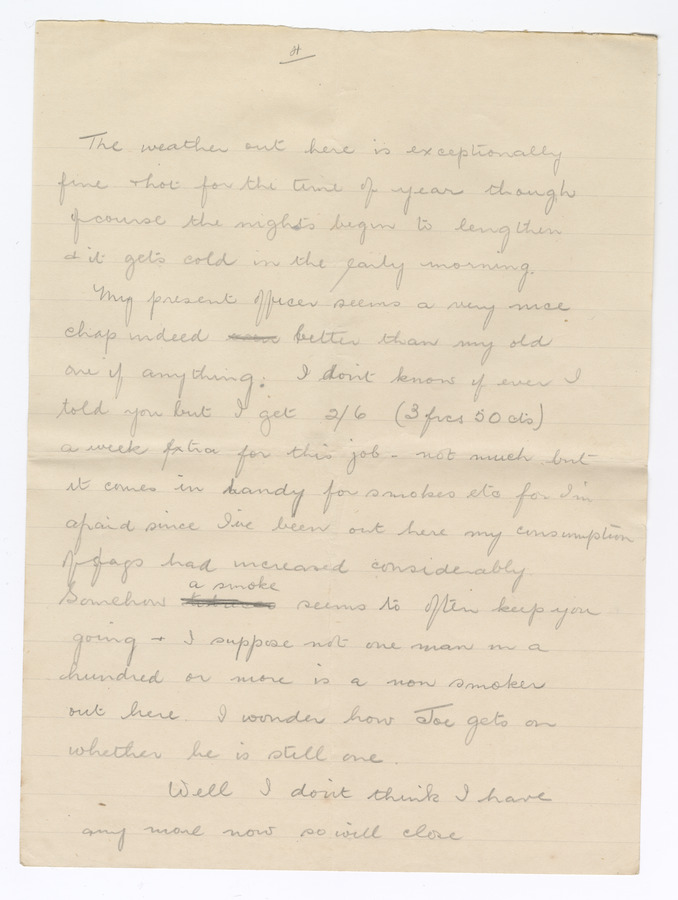 4
The weather out here is exceptionally
fine & hot for the time of year though
of course the nights begin to lengthen
& it gets cold in the early morning.
My present officer seems a very nice
chap indeed better than my old
one if anything. I don't know if ever I
told you but I get 2/6 (3 frcs 50 cts)
a week extra for this job - not much but
it comes in handy for smokes etc for I'm
afraid since I've been out here my consumption
of fags had increased considerably
Somehow a smoke seems to often keep you
going & I suppose not one man in a
hundred or more is a non smoker
out here. I wonder how Joe gets on
whether he is still one.
Well I don't think I have
any more now so will close